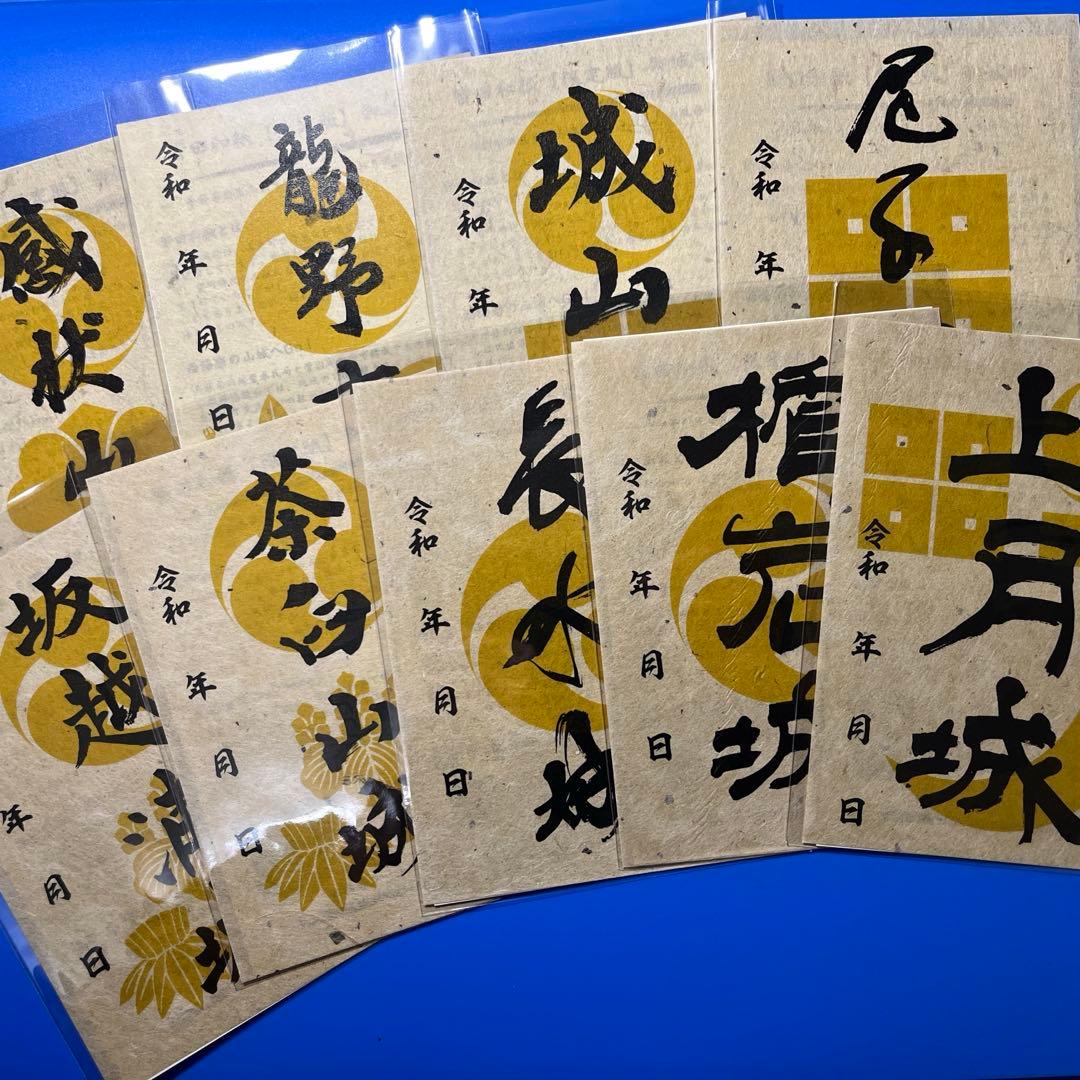 感状山
令和
年
月
日
龍野
令和
年
城山
令和
年
尼子
令和
年
月
日
坂越浦城
令和
年
月
日
茶臼山城
令和
年
月
日
長水城
令和
年
月
日
楯岩城
令和
年
月
日
上月城